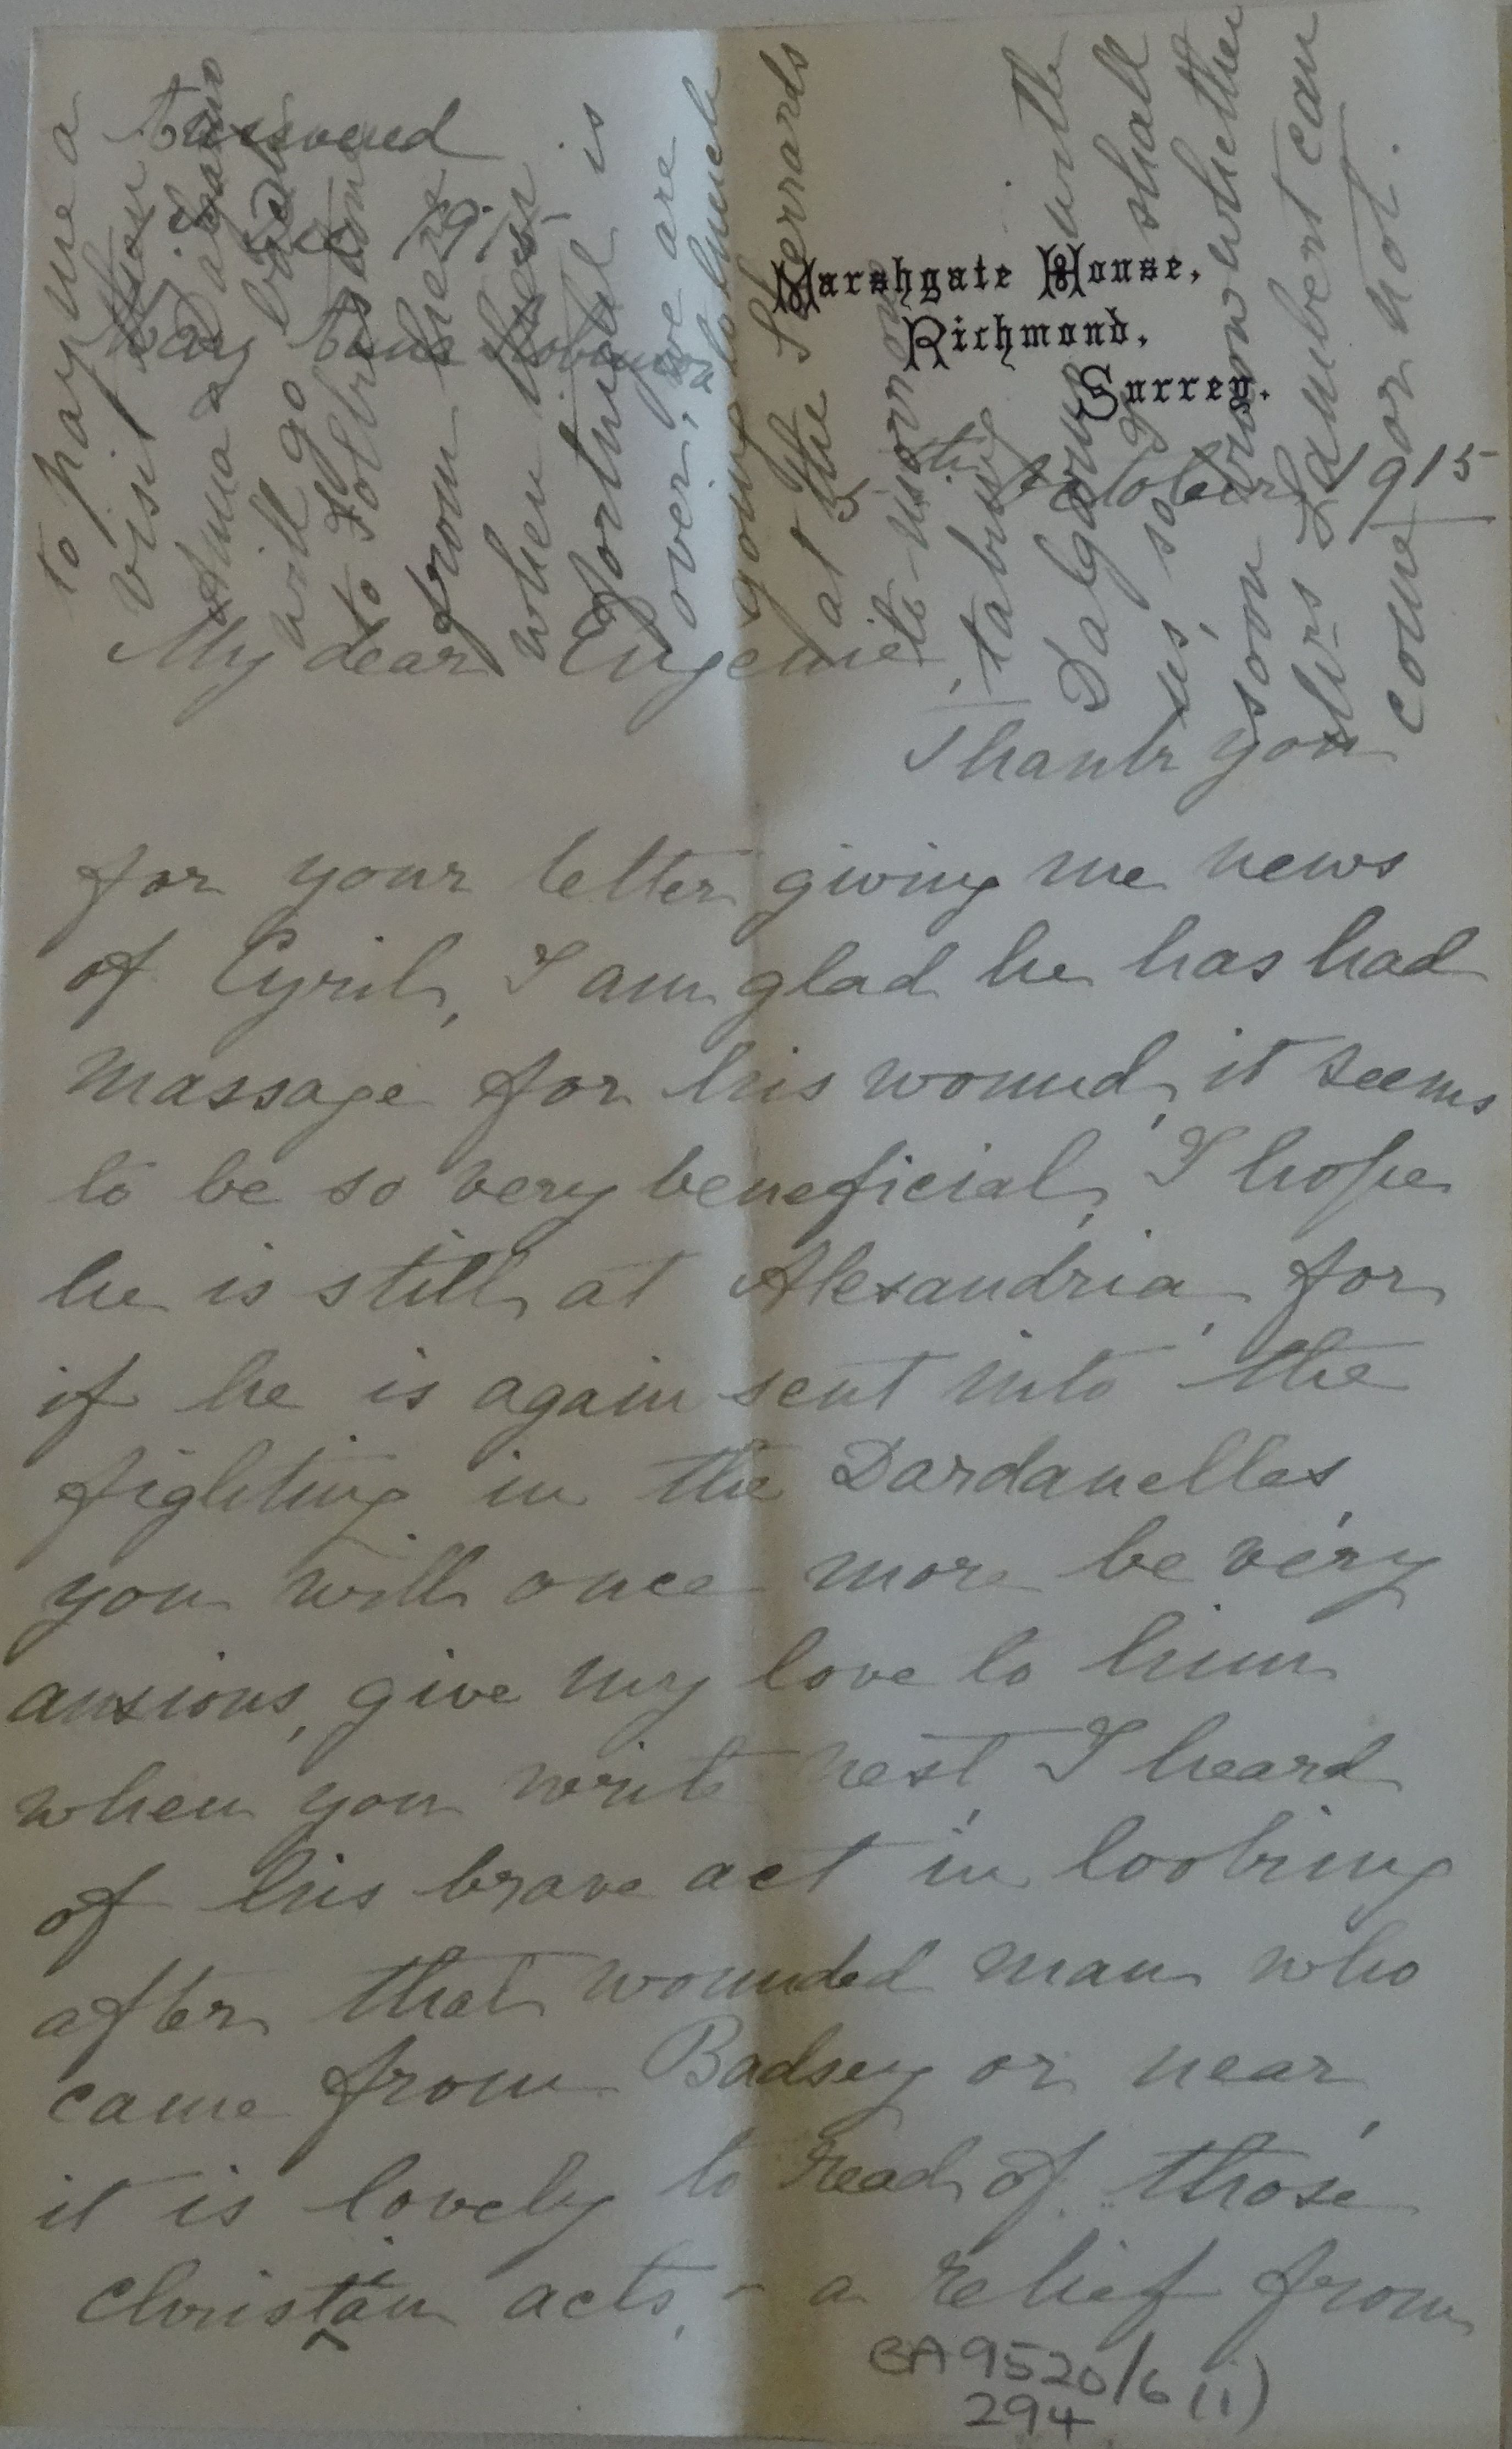 Answered
Dec 1915
Marshgate House,
Richmond,
Surrey.
5th October 1915
My dear Eugenie,
Thank you
for your letter giving me news
of Cyril, I am glad he has had
massage for his wound, it seems
to be so very beneficial, I hope
he is still at Alexandria, for
if he is again sent into the
fighting in the Dardanelles,
you will once more be very
anxious, give my love to him
when you write next, I heard
of his brave act in looking
after that wounded man who
came from Badsey or near,
it is lovely to read of those
christian acts, - a relief from
to pay me a
visit, then
Anna &
will go back
to Folkestone
from here
when their
fortnight is
over, we are
going to lunch
at the Sherrards
to-morrow
taking
Dalgarno with
us, so shall
soon know whether
Mrs Lambert can
come or not.
BA 9520/6 (i)
294